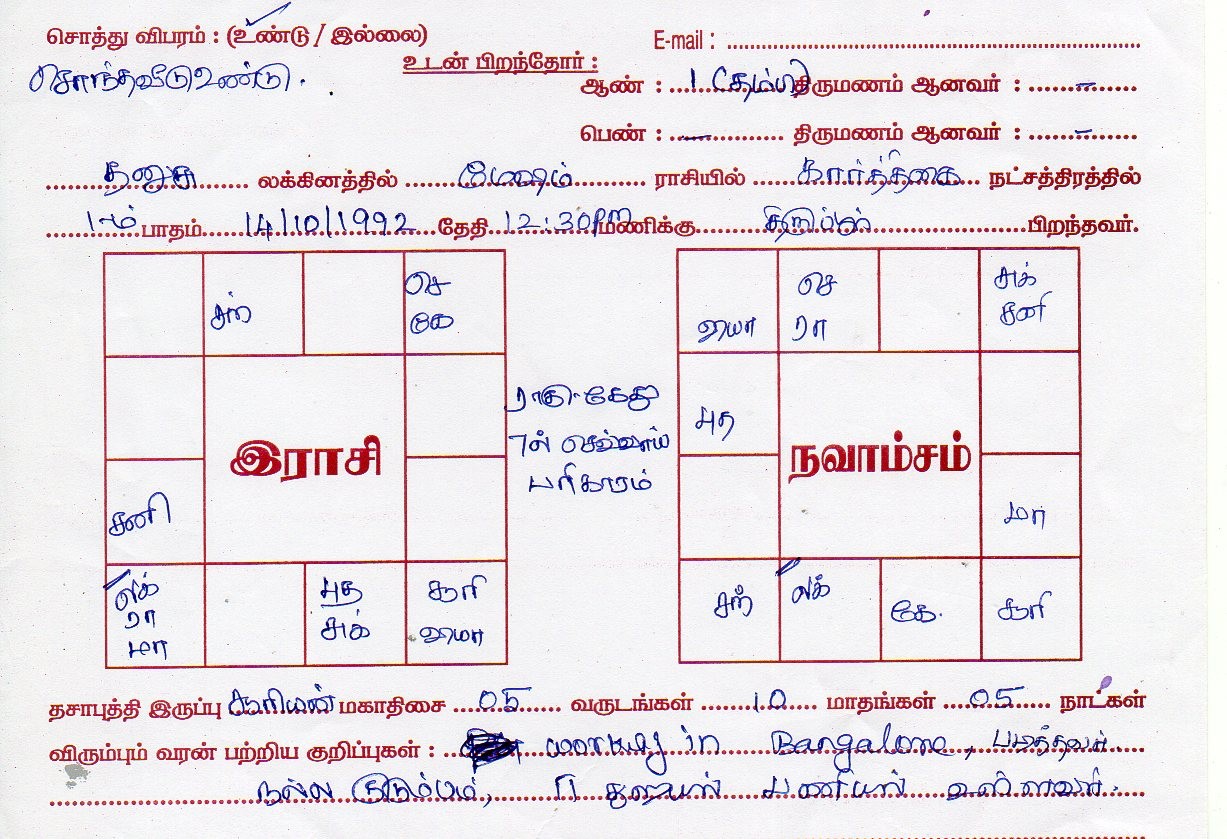 சொத்து விபரம் : (உண்டு / இல்லை)
E-mail : ....................
சொந்தவீடு உண்டு.
உடன் பிறந்தோர் :
ஆண் : 1 தம்பி திருமணம் ஆனவர் : –
பெண் : – திருமணம் ஆனவர் : –
தனுசு லக்கினத்தில் மேஷம் ராசியில் கார்த்திகை நட்சத்திரத்தில்
1-ம் பாதம் 14/10/1992 தேதி 12:30pm மணிக்கு பிறந்தவர்.
சந்
செ
கே
சனி
லக்
ரா
மா
புத
சுக்
சூரி
இராசி
ராகு-கேது
7ல் செவ்வாய்
பரிகாரம்
செ
ரா
சுக்
சனி
புத
மா
சந்
லக்
கே.
சூரி
நவாம்சம்
தசாபுத்தி இருப்பு சூரியன் மகாதிசை 05 வருடங்கள் 10 மாதங்கள் 05 நாட்கள்
விரும்பும் வரன் பற்றிய குறிப்புகள் : working in Bangalore,
நல்ல குடும்பம், IT துறையில் பணியில் உள்ளவர்.